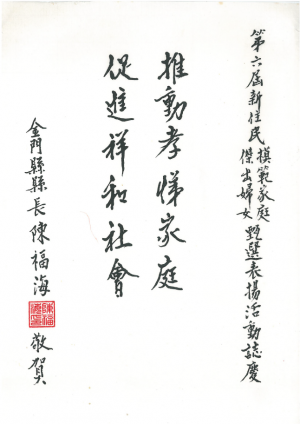 第六屆新住民模範家庭
傑出婦女甄選表揚活動誌慶
推動孝悌家庭
促進祥和社會
金門縣縣長陳福海
陳福海印
敬賀